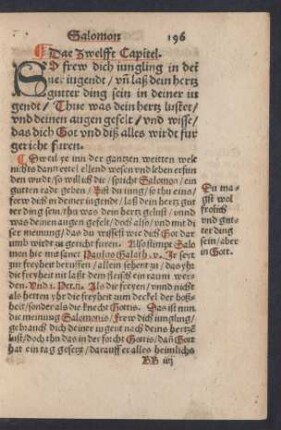 Salomon 196
Dae Zwelffte Capitel.
SO frew dich iungling in der
ner iugendt / vñ laß dein hertz
gutter ding sein in deiner iu
gendt / Thue was dein hertz lustet /
vnd deinen augen gefelt / vnd wisse /
das dich Got vnd diß alles wirdt fur
gericht furen.
Dweil ye inn der gantzen weitten welt
nichts dan eytel ellend wesen vnd leben erfun
den wirdt / so will ich dir / spricht Salomo / ein
gutten radt geben / Bist du iung / so thu eins /
frew dich in deiner iugendt / laß dein hertz gut
ter ding sein / thu was dein hertz gelust / vnnd
was deinen augen gefelt / doch also / vnd mit di
ser meinung / das du wissest wie dich Got dar
umb wirdt zu gericht furen. Also stimpt Salo
mon hie mit sanct Paulus Galath. v. Ir seyt
zur freyheit beruffen / allein sehent zu / das yhr
die freyheit nit laßt dem fleisch ein raum wer
den. Vnd 1. Pet. ij. Als die freyen / vnnd nicht
als hetten yhr die freyheit zum deckel der boß
heit / sonder als die knecht Gottis. Das ist nun
die meinung Salomonis / Frew dich iungling /
gebrauch dich deiner iugent nach deins hertzē
lust / doch thu das in der forcht Gottis / dañ Gott
hat ein tag gesetzt / darauff er alles heimlichs
Du ma
gst wol
frolich
vnd gut
ter ding
sein / aber
in Gott.
BB iiij